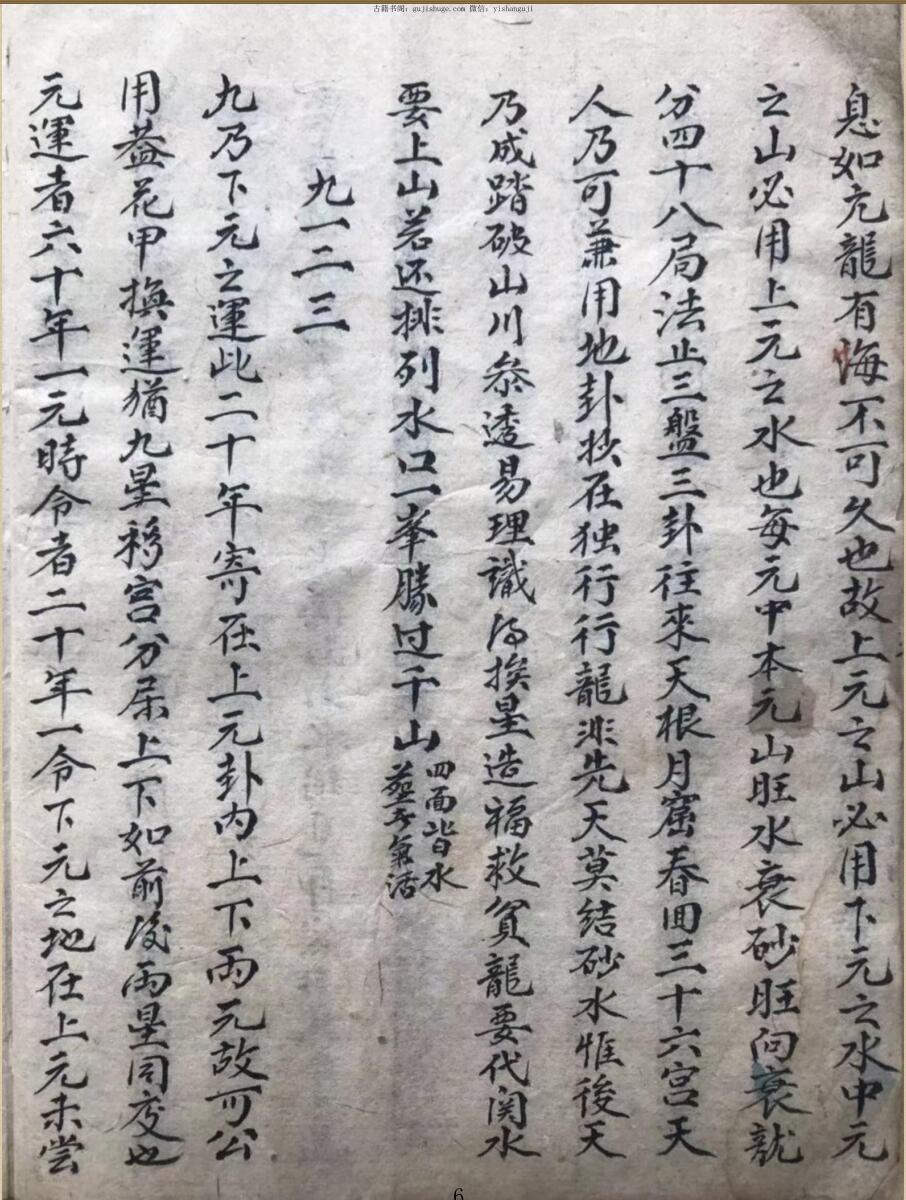 古籍书阁：gujishuge.com 微信：yishanguji
息如亢龍有悔不可久也故上元之山必用下元之水中元
之山必用上元之水也每元中本元山旺水衰砂旺向衰就
分四十八局法止三盤三卦往來天根月窟春囬三十六宮天
人乃可兼用地卦挨在独行行龍非先天莫结砂水惟後天
乃成踏破山川叅透易理識得挨星造福救貧龍要代関水
要上山若还排列水口一峯勝过千山
四面皆水
氣活
九一二三
九乃下元之運此二十年寄在上元卦内上下両元故可公
用葢花甲換運猶九星移宮分屬上下如前後両星同度也
元運者六十年一元時令者二十年一令下元之地在上元未嘗
6